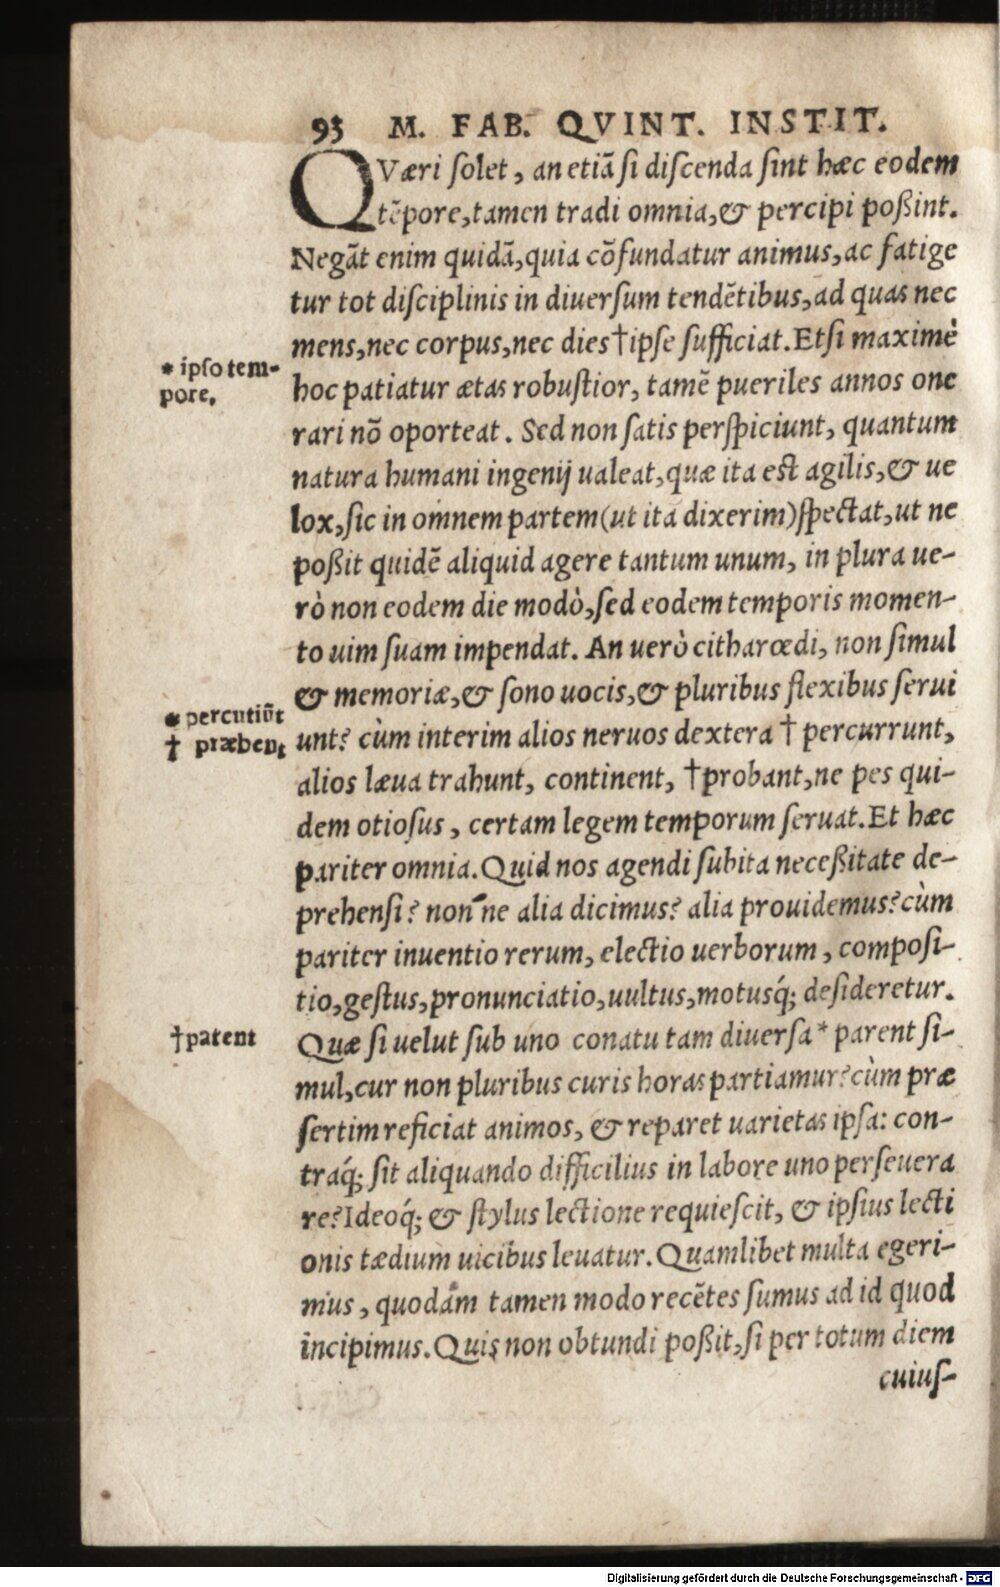 93 M. FAB. QVINT. INSTIT.
QVæri ſolet, an etiã ſi diſcenda ſint hæc eodem
tẽpore, tamen tradi omnia, & percipi poßint.
Negãt enim quidã, quia cõfundatur animus, ac fatige
tur tot diſciplinis in diuerſum tendẽtibus, ad quas nec
mens, nec corpus, nec dies † ipſe ſufficiat. Etſi maximè
* ipſo tem-
pore.
hoc patiatur ætas robuſtior, tamẽ pueriles annos one
rari nõ oporteat. Sed non ſatis perſpiciunt, quantum
natura humani ingenij ualeat, quæ ita eſt agilis, & ue
lox, ſic in omnem partem (ut ita dixerim) ſpectat, ut ne
poßit quidẽ aliquid agere tantum unum, in plura ue-
rò non eodem die modò, ſed eodem temporis momen-
to uim ſuam impendat. An uerò citharœdi, non ſimul
& memoriæ, & ſono uocis, & pluribus flexibus ſerui
* percutiũt
† præbent
unt? cùm interim alios neruos dextera † percurrunt,
alios læua trahunt, continent, † probant, ne pes qui-
dem otioſus, certam legem temporum ſeruat. Et hæc
pariter omnia. Quid nos agendi ſubita neceßitate de-
prehenſi? non ne alia dicimus? alia prouidemus? cùm
pariter inuentio rerum, electio uerborum, compoſi-
tio, geſtus, pronunciatio, uultus, motusq́; deſideretur.
† patent
Quæ ſi uelut ſub uno conatu tam diuerſa * parent ſi-
mul, cur non pluribus curis horas partiamur? cùm præ
ſertim reficiat animos, & reparet uarietas ipſa: con-
traq́; ſit aliquando difficilius in labore uno perſeuera
re? Ideoq́; & ſtylus lectione requieſcit, & ipſius lecti
onis tædium uicibus leuatur. Quamlibet multa egeri-
mus, quodam tamen modo recẽtes ſumus ad id quod
incipimus. Quis non obtundi poßit, ſi per totum diem
cuiuſ-
Digitalisierung gefördert durch die Deutsche Forschungsgemeinschaft - DFG